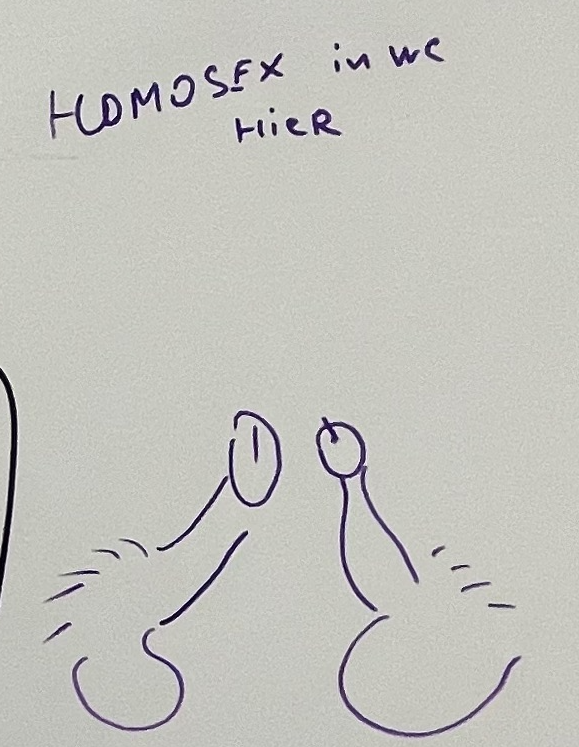 HOMOSEX in WC
HieR